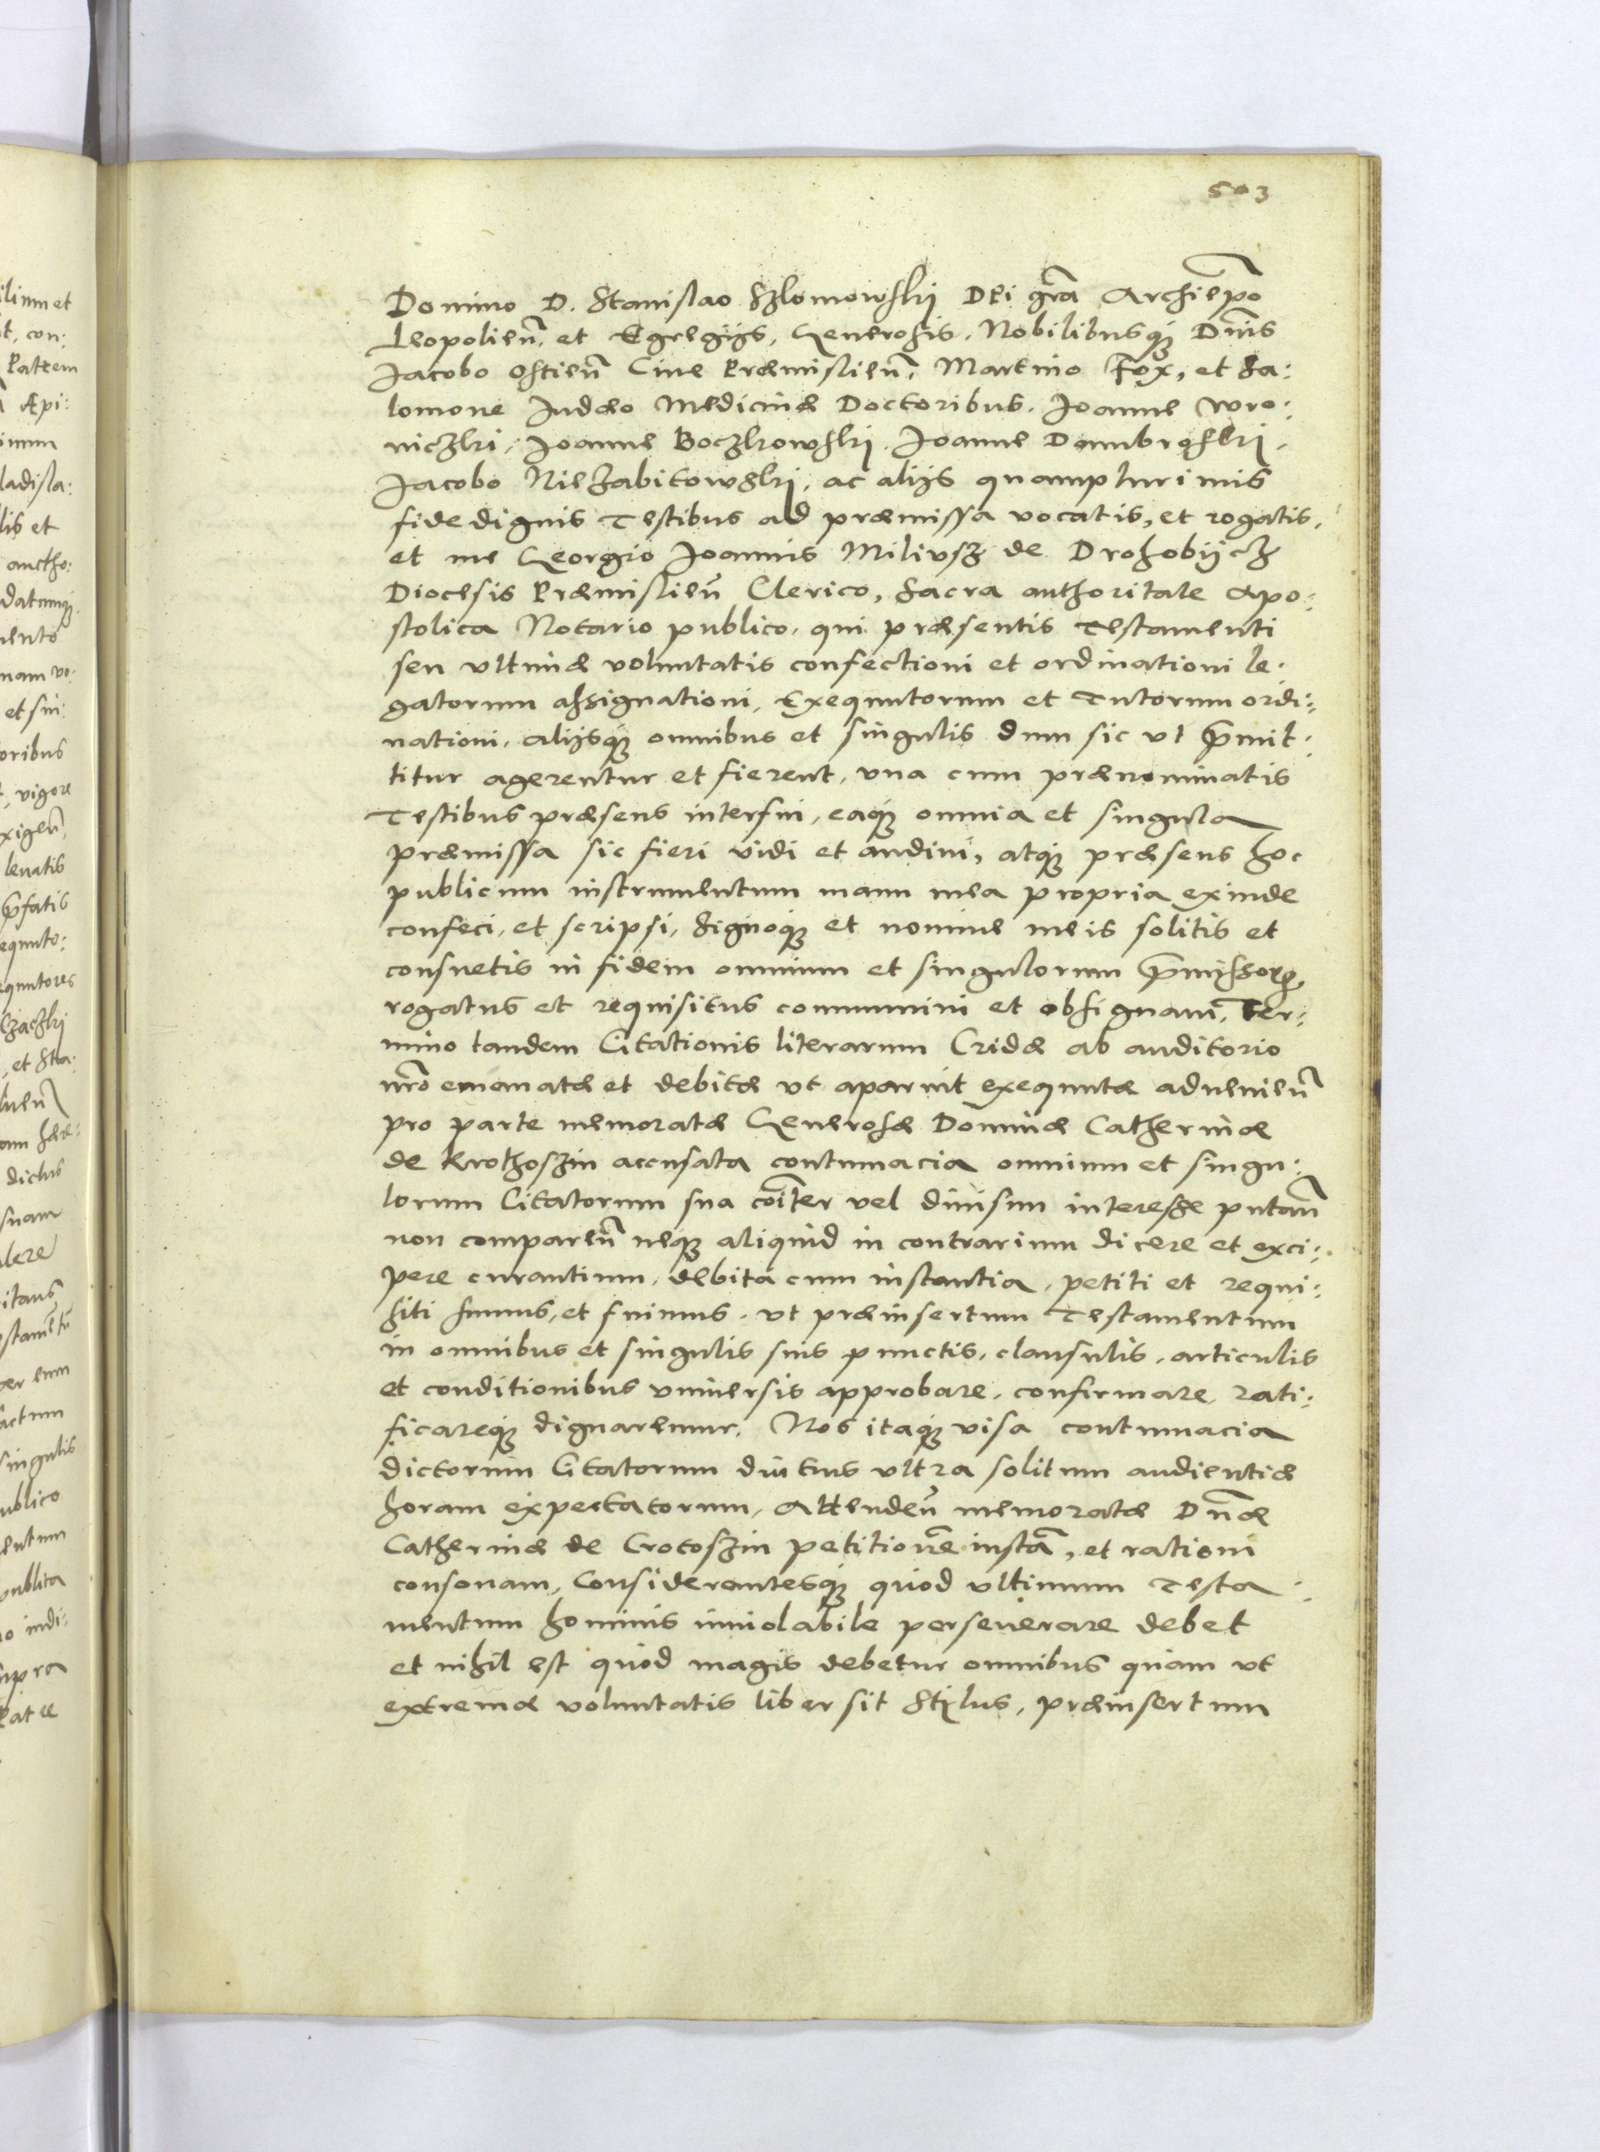 503
Domino D. Stanislao Szlomowski Dei gr̃a Archiep̃o
Leopolien̄. et Egregijs, Generosis, Nobilibusq₃ Dn̄is
Jacobo Ostien̄ Ciue Præmislien̄. Martino Fox, et Sa:
lomone Judæo Medicinæ Doctoribus. Joanne Wro:
niczki, Joanne Boczkowski. Joanne Dambroski.
Jacobo Niezabitowski, ac alijs quamplurimis
fide dignis Testibus ad præmissa vocatis, et rogatis,
et me Georgio Joannis Miliusz de Drohobijcz
Diocesis Præmislien̄ Clerico, Sacra authoritate Apo:
stolica Notario publico, qui præsentis Testamenti
seu vltimæ voluntatis confectioni et ordinationi le:
gatorum assignationi, Exequutorum et Tutorum ordi:
nationi, alijsq₃ omnibus et singulis dum sic vt p̄mit:
titur agerentur et fierent, vna cum prænominatis
Testibus præsens interfui, eaq₃ omnia et singula
præmissa sic fieri vidi et audiui, atq₃ præsens hoc
publicum instrumentum manu mea propria exinde
confeci, et scripsi, Signoq₃ et nomine meis solitis et
consuetis in fidem omnium et singulorum p̄missorꝝ,
rogatus et requisitus communiui et obsignaui. Ter:
mino tandem Citationis literarum Cridæ ab auditorio
nr̄o emanatæ et debitæ vt aparuit exequutæ aduenien̄
pro parte memoratæ Generosæ Dominæ Catherinæ
de Krothoszin accusata contumacia omnium et singu:
lorum Citatorum sua coīter vel diuisim interesse putan̄
non comparen̄ neq₃ aliquid in contrarium dicere et exci:
pere curantium, debita cum instantia, petiti et requi:
siti sumus, et fuimus. vt præinsertum Testamentum
in omnibus et singulis suis punctis, clausulis, articulis
et conditionibus vniuersis approbare, confirmare rati:
ficareq₃ dignaremur. Nos itaq₃ visa contumacia
dictorum Citatorum diutius vltra solitum audientiæ
horam expectatorum, Attenden̄ memoratæ Dn̄æ
Catherinæ de Crotoszin petitionē instā, et rationi
consonam, Considerantesq₃ quod vltimum Testa:
mentum hominis inuiolabile perseuerare debet
et nihil est quod magis debetur omnibus quam vt
extremæ voluntatis liber sit Stylus, præinsertum